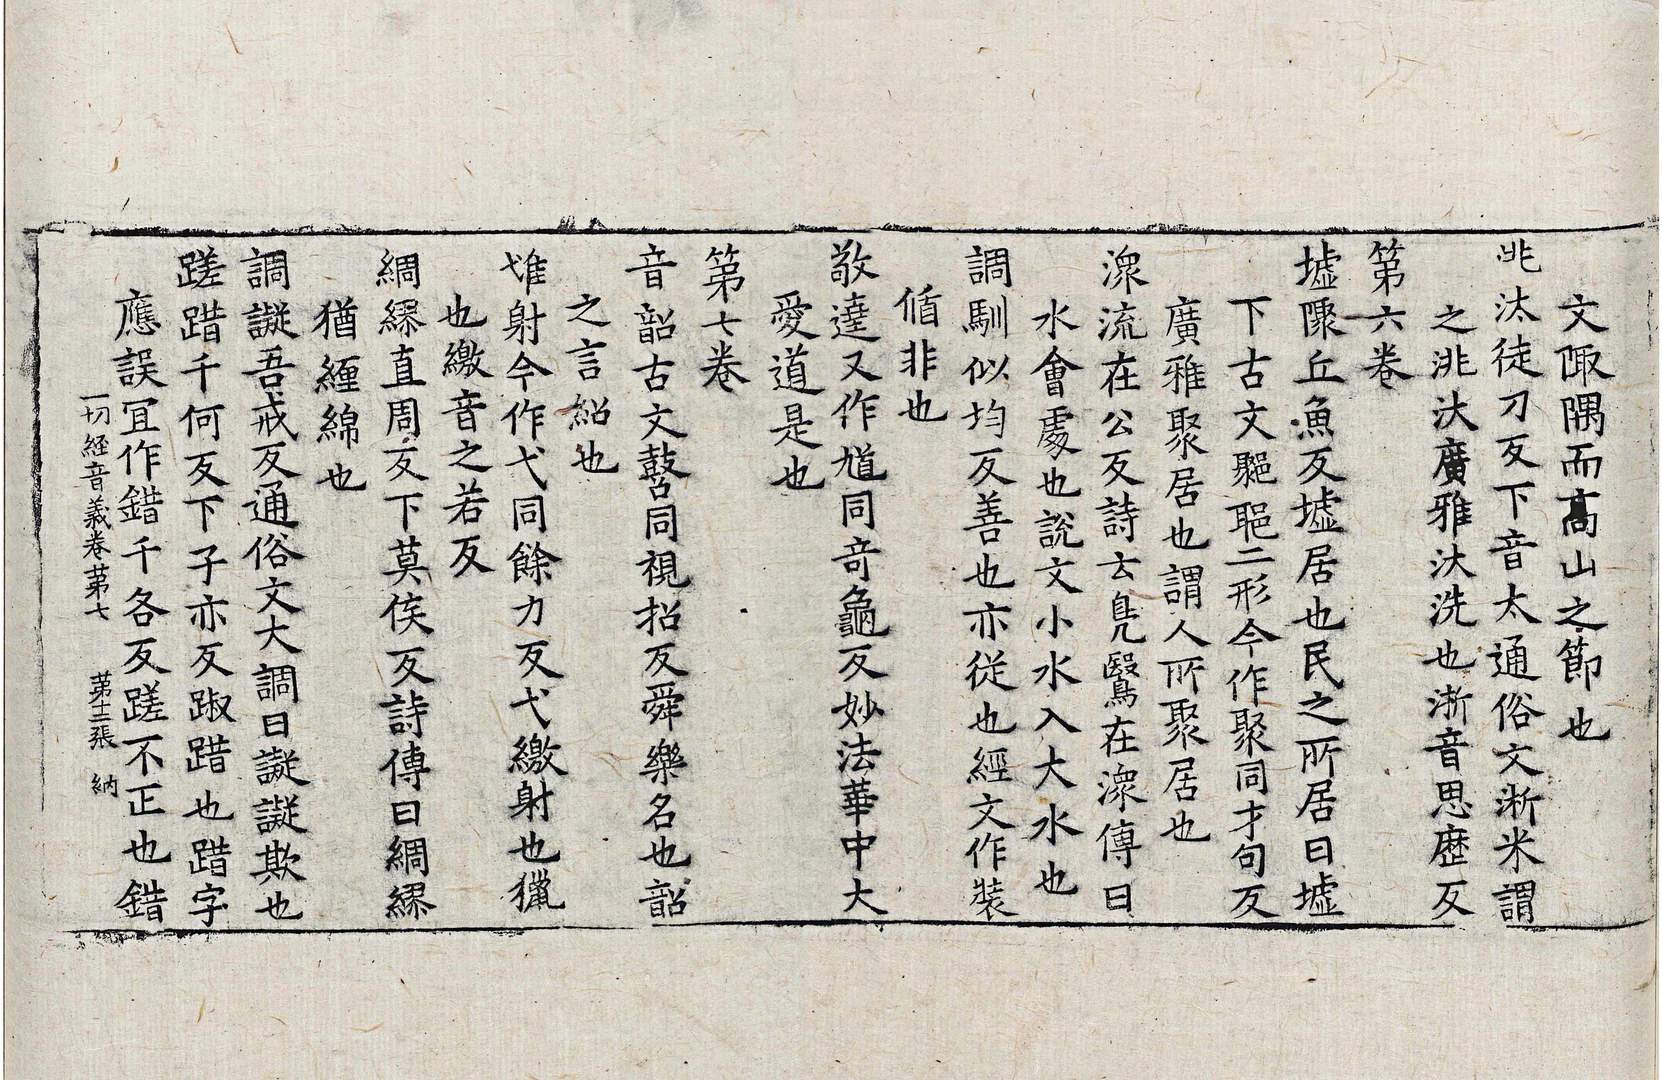 文陬隅而高山之節也
洮汰徒刀反下音太通俗文淅米謂
之洮汏廣雅汏洗也淅音思歴反
第六卷
墟聚丘魚反墟居也民之所居曰墟
下古文䣯𦕁二形今作聚同才句反
廣雅聚居也謂人所聚居也
潀流在公反詩云鳬鷖在潀傳曰
水會處也說文小水入大水也
調馴似均反善也亦従也經文作裝
偱非也
敬達又作馗同竒龜反妙法華中大
愛道是也
第七卷
音韶古文㲈同視招反舜樂名也韶
之言紹也
䧹射今作弋同餘力反弋繳射也獵
也繳音之若反
綢繆直周反下莫侯反詩傳曰綢繆
猶緾綿也
調譺吾戒反通俗文大調曰譺譺欺也
蹉踖千何反下子亦反踧踖也踖字
應誤冝作錯千各反蹉不正也錯
一切經音義卷苐七 苐十二張 納